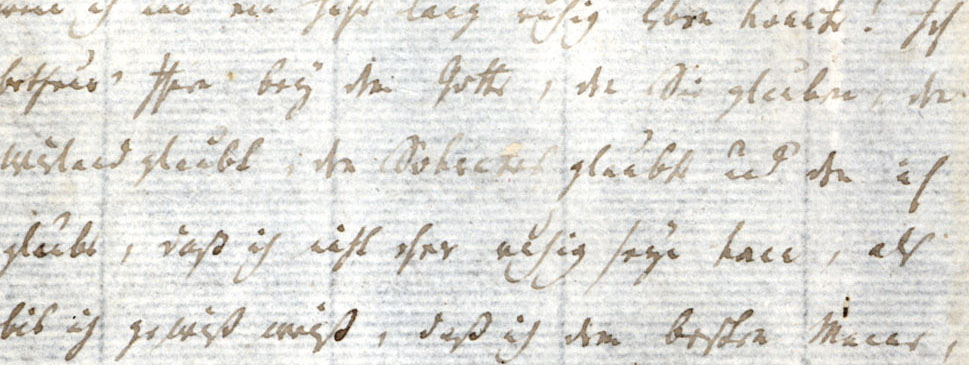 wenn ich nur ein Jahr lang ruhig leben könnte! Ich
betheure Ihnen bey dem Gotte, den Sie glauben, den
Wieland glaubt, den Sokrates glaubte und den ich
glaube, daß ich nicht eher ruhig seyn kann, als
bis ich gewiß weiß, daß ich dem besten Manne,